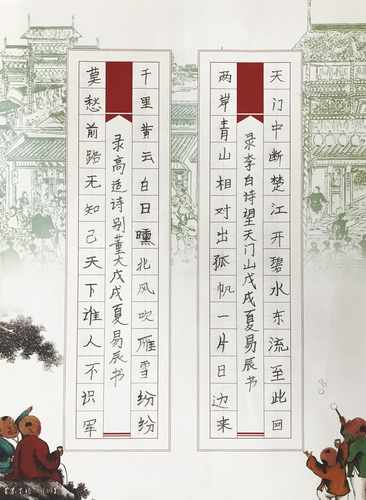 天门中断楚江开碧水东流至此回
两岸青山相对出孤帆一片日边来
录李白诗望天门山戊戌夏易辰书
千里黄云白日曛北风吹雁雪纷纷
莫愁前路无知己天下谁人不识军
录高适诗别董大戊戌夏易辰书